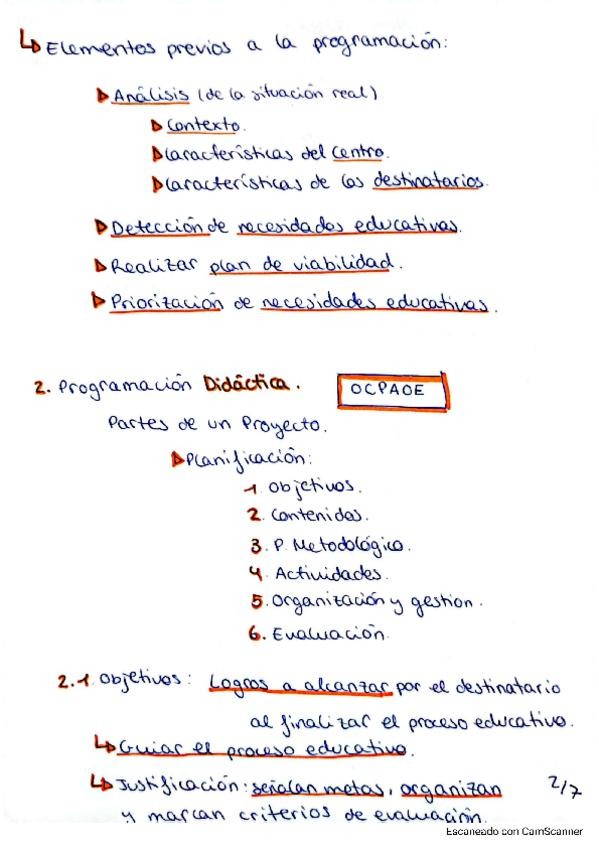 ↳ Elementos previos a la programación:
▷ Análisis (de la situación real)
▷ Contexto.
▷ Características del centro.
▷ Características de los destinatarios.
▷ Detección de necesidades educativas.
▷ Realizar plan de viabilidad.
▷ Priorización de necesidades educativas.
2. Programación Didáctica. OCPAOE
Partes de un Proyecto.
▷ Planificación:
1. Objetivos.
2. Contenidos.
3. P. Metodológico.
4. Actividades.
5. Organización y gestion.
6. Evaluación.
2.1. Objetivos: Logros a alcanzar por el destinatario
al finalizar el proceso educativo.
↳ Guiar el proceso educativo.
↳ Justificación: señalan metas, organizan
y marcan criterios de evaluación.
2/7
Escaneado con CamScanner